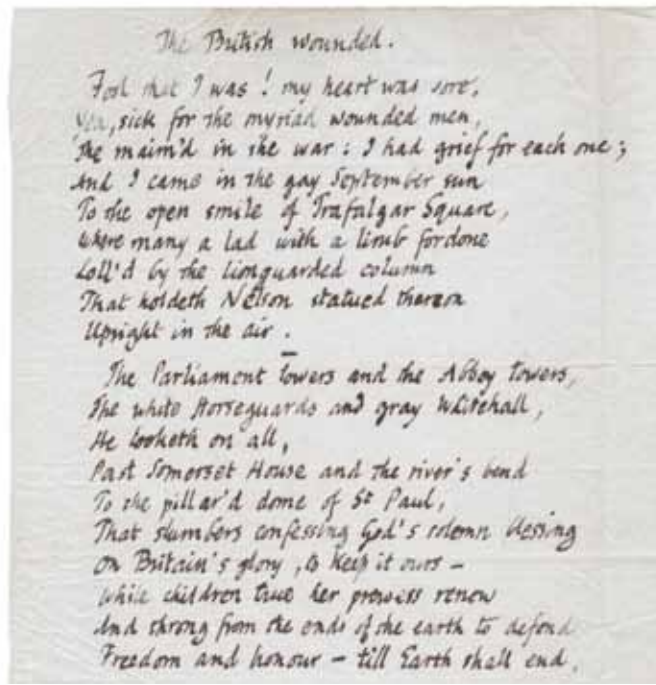 The British wounded.
Fool that I was! my heart was sore,
Yea, sick for the myriad wounded men,
The maim'd in the war: I had grief for each one;
And I came in the gay September sun
To the open smile of Trafalgar Square,
Where many a lad with a limb fordone
Loll'd by the lionguarded column
That holdeth Nelson statued thereon
Upright in the air.
The Parliament towers and the Abbey towers,
The white Horseguards and gray Whitehall,
He looketh on all,
Past Somerset House and the river's bend
To the pillar'd dome of St Paul,
That slumbers confessing God's solemn blessing
On Britain's glory, to keep it ours –
While children true her prowess renew
And throng from the ends of the earth to defend
Freedom and honour – till Earth shall end.